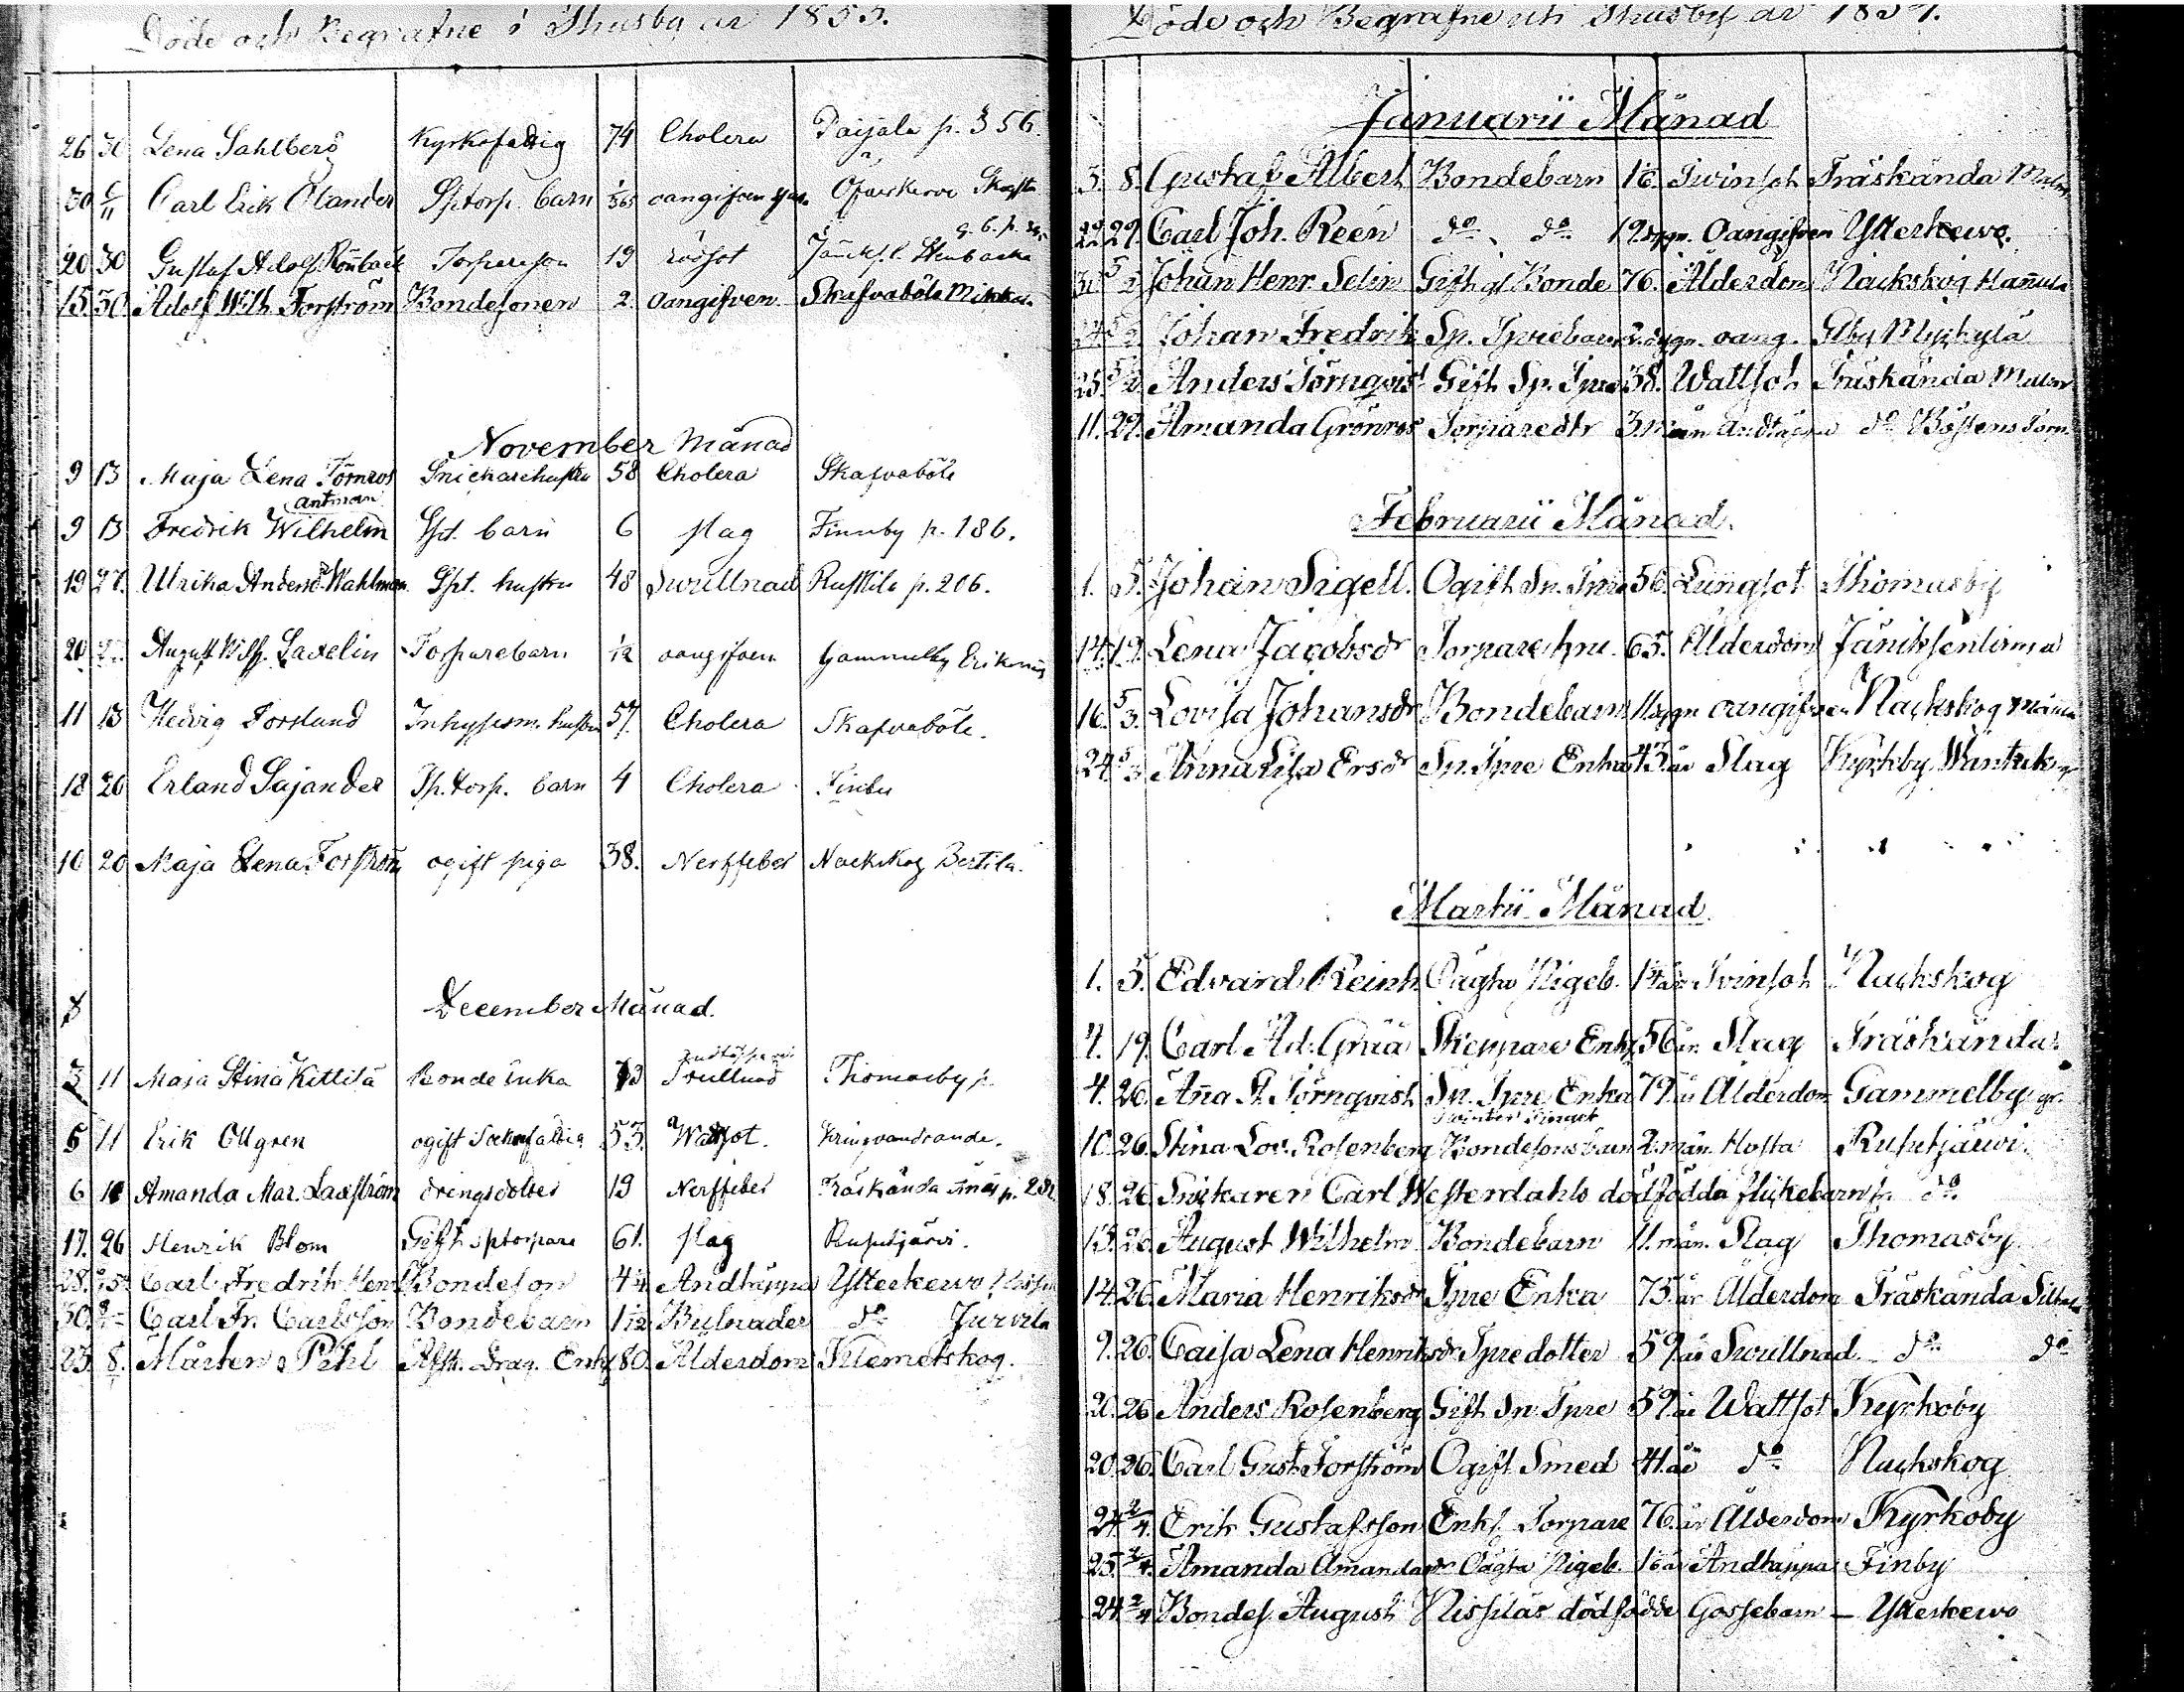 Döde och Begrafne i Thusby år 1853.
26 30 Lena Sahlberg Kyrkofattig 74 Cholera Paijala p. 356.
30 6/11 Carl Erik Elander Sptorp. barn 1/365 oangifven Öfverkervo Skogster
20 30 Gustaf Adolf Rönnback Torpareson 19 rödsot Jäniksl. Stenbacka
15. 30. Adolf Wilh. Forsström Bondesonen 2. Oangifven Skafvaböle Mikkas
November Månad
9 13 Maja Lena Törnros Snickarehustru 58 Cholera Skafvaböle
Antman
9 13 Fredrik Wilhelm Spt. barn 6 slag Finnby p. 186.
19 27. Ulrika Andersdr Wahlman Spt. hustru 48 Swullnad Ruskila p. 206.
20 August Wilh. Laxelin Torparebarn 1/12 oangifven Gammelby Erik
11 13 Hedvig Forslund Inhysesm. hustru 57. Cholera Skafvaböle.
18 20 Erland Sajander Sp. torp. barn 4 Cholera Finby
10 20 Maja Lena Forström ogift piga 38. Nerffeber Nackskog Bertila.
December Månad.
3 11 Maja Stina Kittilä Bonde Enka 73 Swullnad Thomasby p.
6 11 Erik Ollgren ogift Sockenfattig 53. Wattsot. Kringvandrande.
6 Amanda Mar. Laxström drengsdotter 19 Nerffeber Träskända
17. 26 Henrik Blom Gift sptorpare 61. slag Rusutjärvi.
28. Carl Fredrik Henr. Bondeson 4 Andtäppa Ytterkervo
30. Carl Fr. Carlsson Bondebarn 1 1/12 Bulnader do Jurvila
23. 8. Mårten Pihl Afsk. Drag. Enkl. 80. Ålderdom Klemetskog.
Döde och Begrafne uti Thusby år 1854.
Januarii Månad
3. 8. Gustaf Albert Bondebarn Tvinsot Träskända
22 29. Carl Joh. Reen do do 19 dygn. Oangifven Ytterkervo.
31 5/2 Johan Henr. Selin Gift gl. Bonde 76. Ålderdom Nackskog Hannula
24 5/2 Johan Fredrik Sp. Tprebarn 2 dygn. oang. Hby Myrkylä
25. 5/2. Anders Törnqvist Gift Sp. Tpre 38. Wattsot Träskända
11. 29. Amanda Grönroos Torparedtr 3 mån Andtäppa do Böstens Torn.
Februarii Månad.
1. 5. Johan Sigell. Ogift Sp. Tpre 56. Lungsot Thomasby
14. 19. Lena Jacobsdr Torpare hu. 65. Ålderdom Jäniksenlinna
16. 5/3. Lovisa Johansdr Bondebarn 11 dygn oangifven Nackskog
24. 5/3 Anna Lisa Ersdr Sp. Tpre Enka 43. år Slag Kyrkby
Martii Månad.
1. 5. Edvard Reinh. Oägta Pigeb. Tvinsot Nackskog
7. 19. Carl Ad. Gråå Skeppare Enkl. 56 år. Slag Träskända
4. 26. Anna St. Törnqvist Sp. Tpre Enka 79. år Ålderdom Gammelby
10. 26. Stina Lov. Rosenberg Bondesonsbarn 2. mån. Hosta Rusutjärvi.
18. 26 Snickaren Carl Westerdahls dödfödda flickebarn fr. do
13. 26. August Wilhelm Bondebarn 11. mån. Slag Thomasby
14. 26. Maria Henriksdr Tpre Enka 75. år Ålderdom Träskända
9. 26. Caisa Lena Henriksdr Tpre dotter 59 år Swullnad do do
20. 26 Anders Rosenberg Gift Sp Tpre 59. år Wattsot Kyrkoby
20. 26. Carl Gust. Forström Ogift Smed 41. år do Nackskog
24. 2/4. Erik Gustafsson Enkl. Torpare 76. år Ålderdom Kyrkoby
25. 2/4. Amanda Amandasdr Oägta Pigeb. Andtäppa Finby
24. 2/4 Bondes. August Nissiläs dödfödde Gossebarn — Ytterkervo